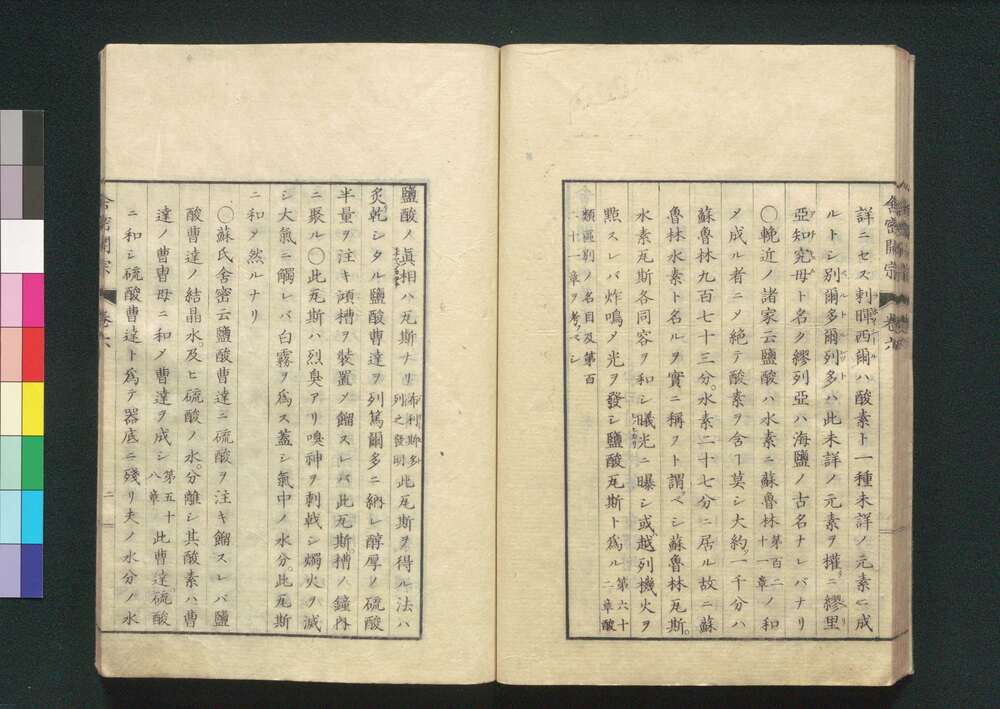 舎密開宗 巻六
詳ニセス剌暉西爾ハ酸素ト一種未詳ノ元素ニ成
ルトシ別爾多爾列多ハ此未詳ノ元素ヲ權ニ繆里
亞知究母ト名ク繆列亞ハ海鹽ノ古名ナレバナリ
○輓近ノ諸家云鹽酸ハ水素ニ蘇魯林第百二十一章ノ和
メ成ル者ニメ絶テ酸素ヲ含ヿ莫シ大約一千分ハ
蘇魯林九百七十三分水素二十七分ニ居ル故ニ蘇
魯林水素ト名ルヲ實ニ稱フト謂ベシ蘇魯林瓦斯
水素瓦斯各同容ヲ和シ曦光ニ曝シ或越列機火ヲ
㸃スレバ炸鳴メ光ヲ發シ鹽酸瓦斯ト爲ル第六十二章酸
類區別ノ名目及第百二十一章ヲ考ベシ
鹽酸ノ眞相ハ瓦斯ナリ布利斯多列之發明此瓦斯ヲ得ル法ハ
炙乾シタル鹽酸曹達ヲ列篤爾多ニ納レ醇厚ノ硫酸
半量ヲ注キ澒槽ヲ裝置メ餾スレバ此瓦斯槽ノ鐘內
ニ聚ル○此瓦斯ハ烈臭アリ嗅神ヲ刺戟シ燭火ヲ滅
シ大氣ニ觸レバ白霧ヲ爲ス蓋シ氣中ノ水分此瓦斯
ニ和メ然ルナリ
○蘇氏舎密云鹽酸曹達ニ硫酸ヲ注キ餾スレバ鹽
酸曹達ノ結晶水及ヒ硫酸ノ水分離シ其酸素ハ曹
達ノ曹曹母ニ和メ曹達ヲ成シ第五十八章此曹達硫酸
ニ和シ硫酸曹達ト爲テ器底ニ殘リ夫ノ水分ノ水
舎密開宗 巻六 二